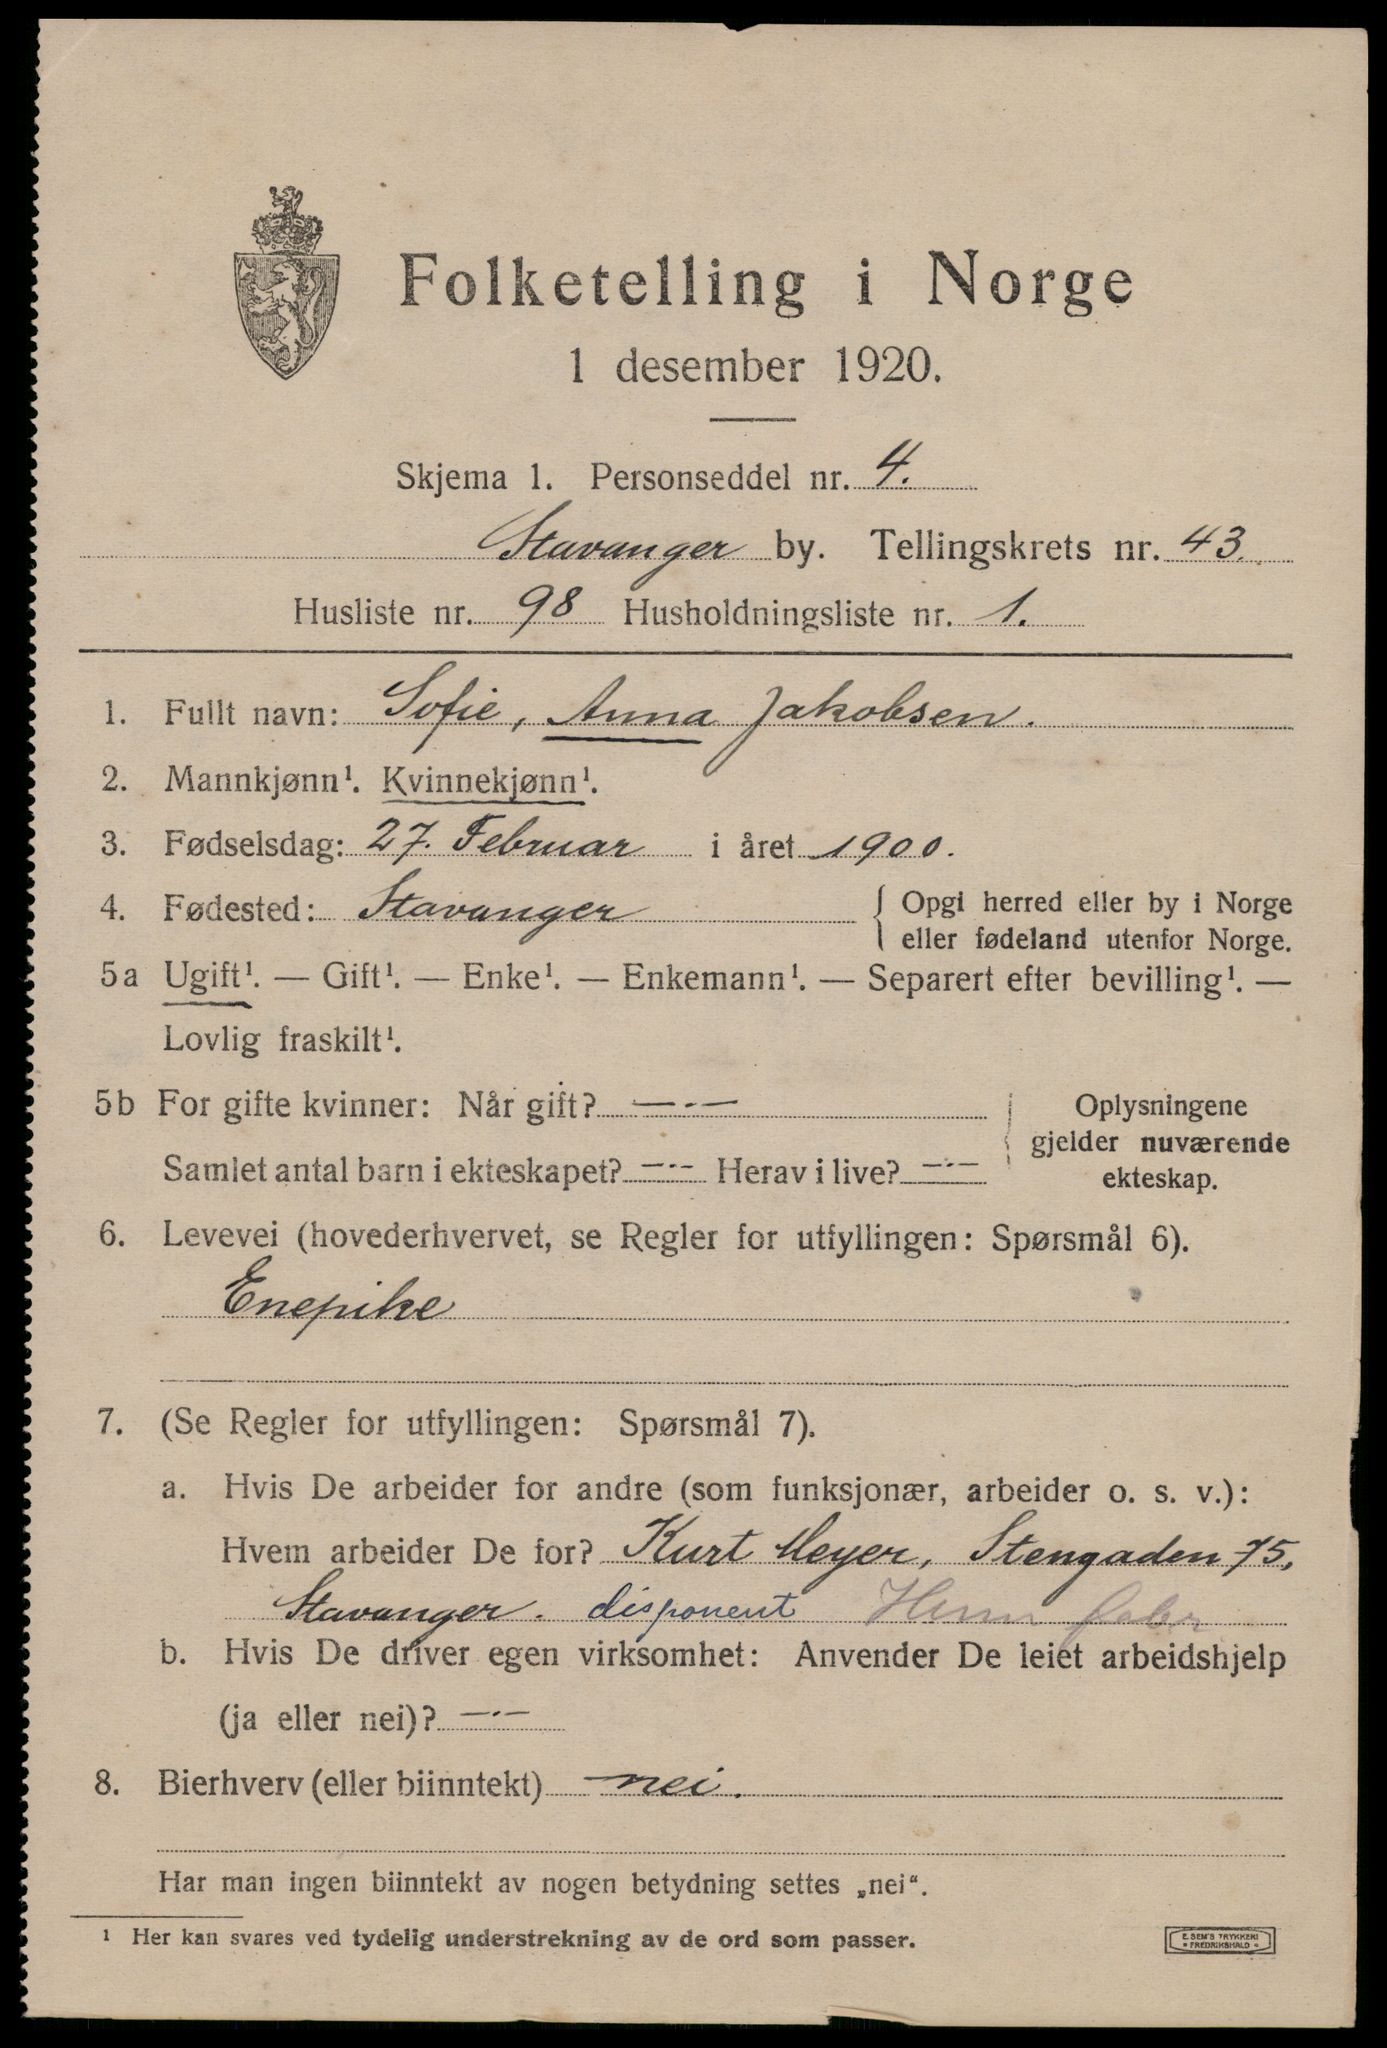 Folketelling i Norge
1 desember 1920.
Skjema 1. Personseddel nr. 4.
Stavanger by. Tellingskrets nr. 43.
Husliste nr. 98 Husholdningsliste nr. 1.
1. Fullt navn: Sofie, Anna Jakobsen.
2. Mannkjønn¹. Kvinnekjønn¹.
3. Fødselsdag: 27. Februar i året 1900.
4. Fødested: Stavanger { Opgi herred eller by i Norge
eller fødeland utenfor Norge.
5a Ugift¹. — Gift¹. — Enke¹. — Enkemann¹. — Separert efter bevilling¹. —
Lovlig fraskilt¹.
5b For gifte kvinner: Når gift? —·— Oplysningene
gjelder nuværende
Samlet antal barn i ekteskapet? —·— Herav i live? —·—
ekteskap.
6. Levevei (hovederhvervet, se Regler for utfyllingen: Spørsmål 6).
Enepike
7. (Se Regler for utfyllingen: Spørsmål 7).
a. Hvis De arbeider for andre (som funksjonær, arbeider o. s. v.):
Hvem arbeider De for? Kurt Meyer, Stengaden 75,
Stavanger. disponent
b. Hvis De driver egen virksomhet: Anvender De leiet arbeidshjelp
(ja eller nei)? —·—
8. Bierhverv (eller biinntekt) nei.
Har man ingen biinntekt av nogen betydning settes „nei“.
¹ Her kan svares ved tydelig understrekning av de ord som passer.
E. SEM'S TRYKKERI
• FREDRIKSHALD •